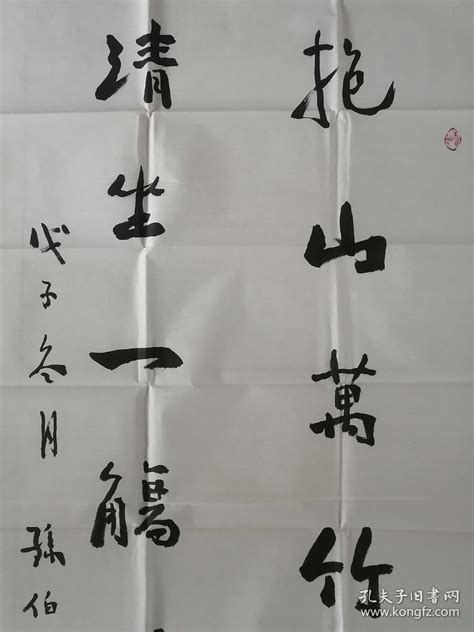 抱山萬竹
清坐一觴
戊子冬月 孫伯
孔夫子旧书网
www.kongfz.com